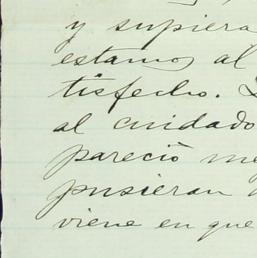 y supiera
estamos al
tisfecho.
al cuidado
pareció me
pusieran
viene en que